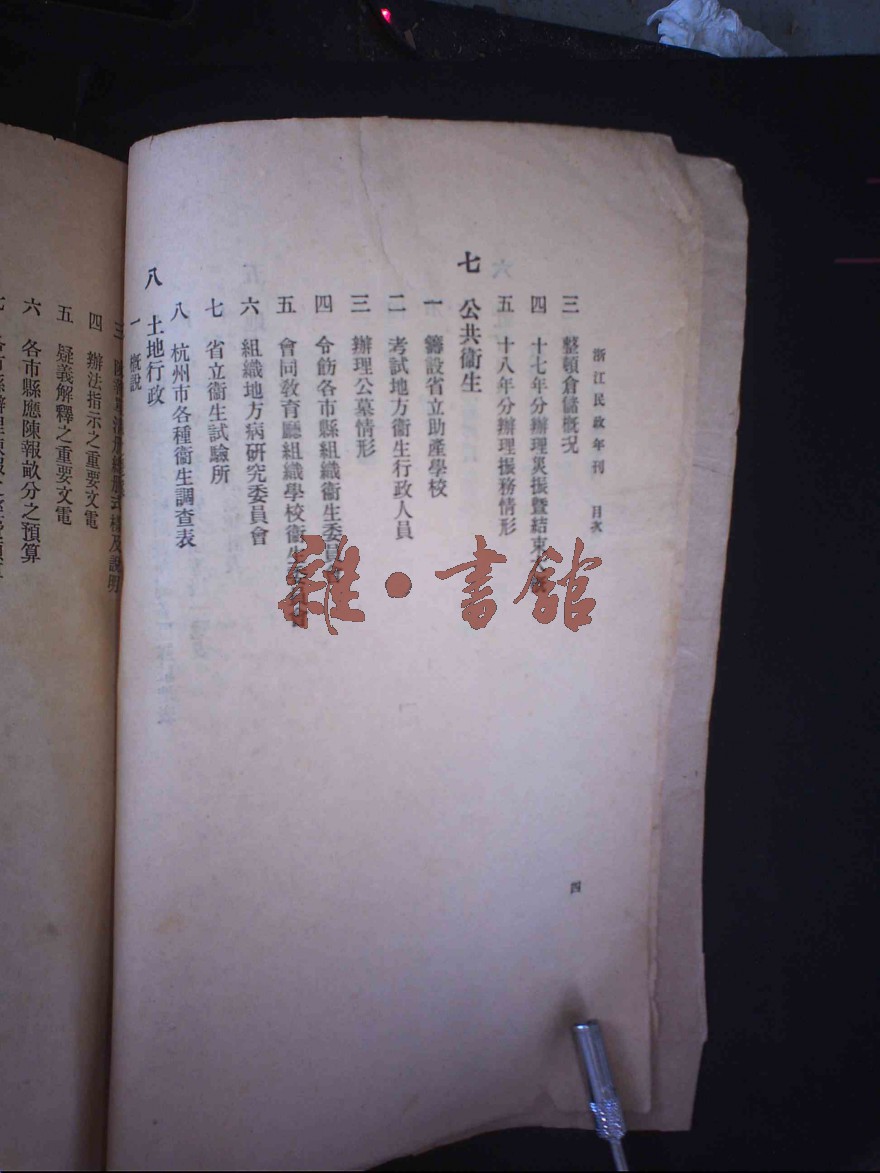 浙江民政年刊 目次
三 整頓倉儲概况
四 十七年分辦理災振暨結束
五 十八年分辦理振務情形
七 公共衞生
一 籌設省立助產學校
二 考試地方衞生行政人員
三 辦理公墓情形
四 令飭各市縣組織衞生委員會
五 會同敎育廳組織學校衞生委員會
六 組織地方病硏究委員會
七 省立衞生試驗所
八 杭州市各種衞生調查表
八 土地行政
一 概說
四
三 及說明
四 辦法指示之重要文電
五 疑義解釋之重要文電
六 各市縣應陳報畝分之預算
七 各市縣辦理陳報
雜·書館